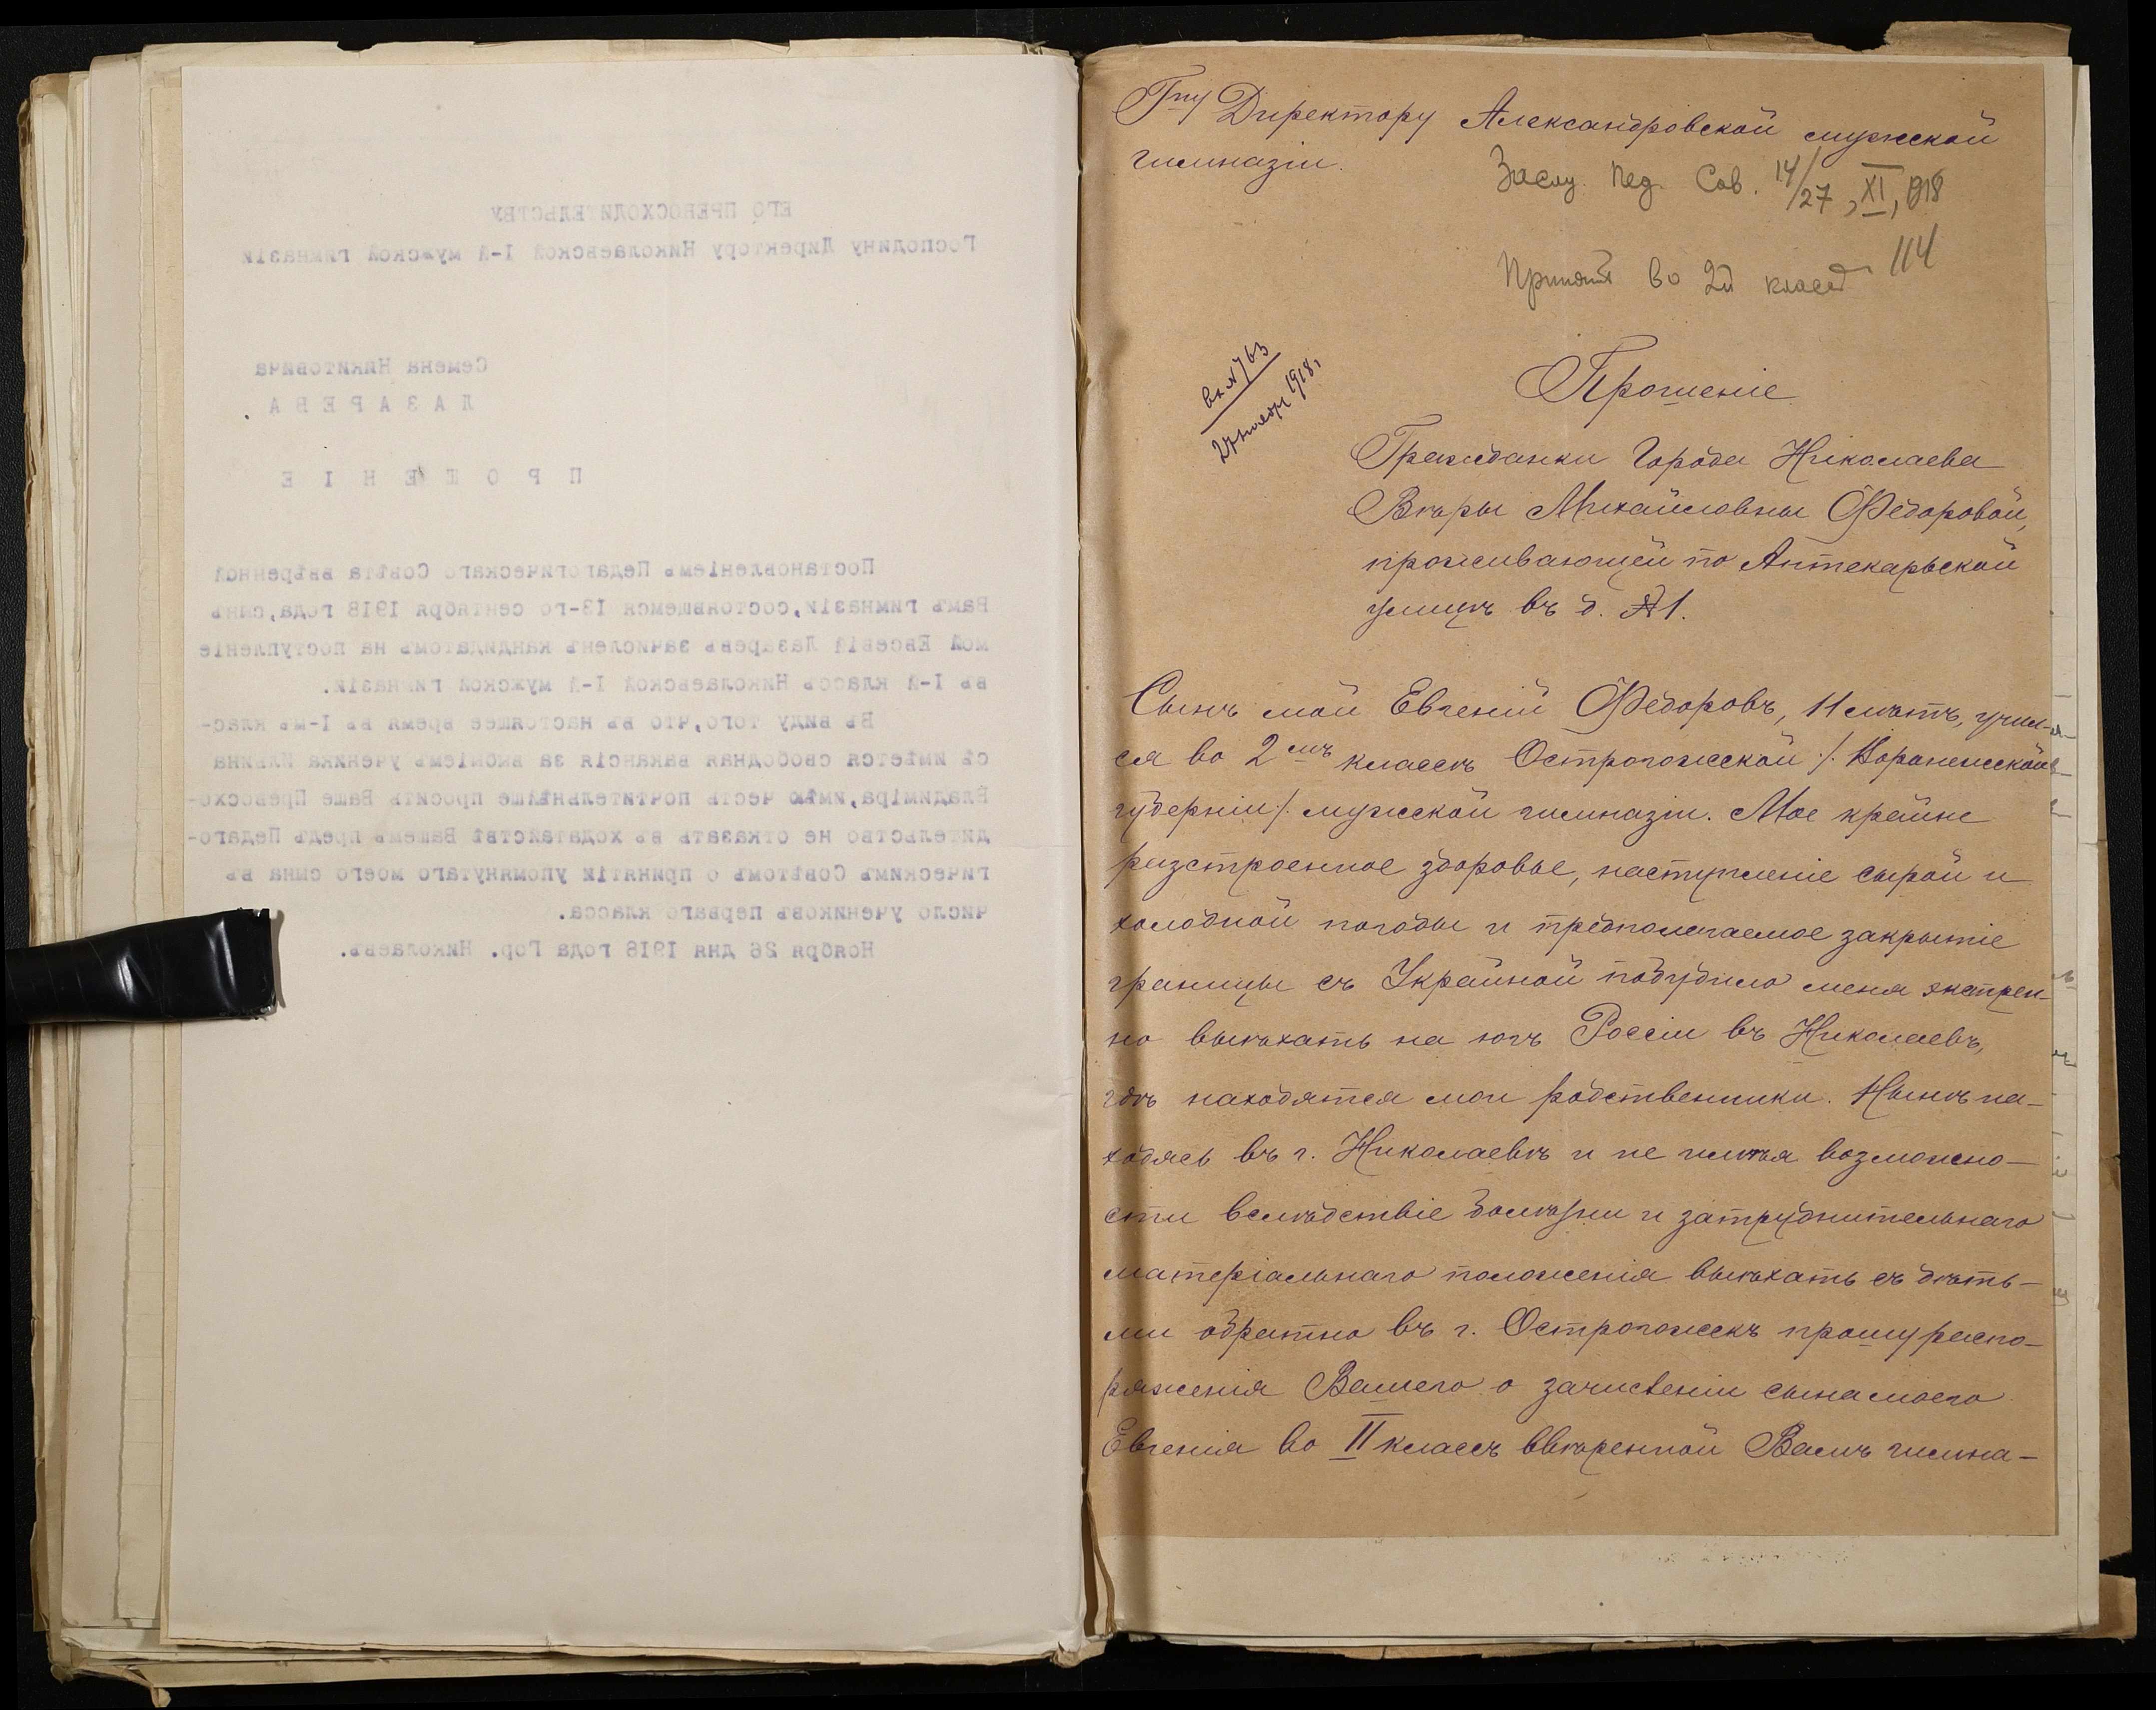 ЕГО ПРЕВОСХОДИТЕЛЬСТВУ
Господину Директору Николаевской I-й мужской гимназіи
Семена Никитовича
ЛАЗАРЕВА
ПРОШЕНІЕ
Постановленіемъ Педагогическаго Совѣта ввѣренной
Вамъ гимназіи, состоявшемся 13-го сентября 1918 года, сынъ
мой Евсевій Лазаревъ зачисленъ кандидатомъ на поступленіе
въ I-й классъ Николаевской I-й мужской гимназіи.
Въ виду того, что въ настоящее время въ I-мъ клас-
сѣ имѣется свободная вакансія за выбытіемъ ученика Ильина
Владиміра, имѣю честь почтительнѣйше просить Ваше Превосхо-
дительство не отказать въ ходатайствѣ Вашемъ предъ Педаго-
гическимъ Совѣтомъ о принятіи упомянутаго моего сына въ
число учениковъ перваго класса.
Ноября 26 дня 1918 года Гор. Николаевъ.
Гну Директору Александровской мужской
гимназіи.
Засѣд. Пед. Сов. 14/27, XI, 918
114
Принятъ во 2й классъ
вх. № 763
27 ноября 1918 г.
Прошеніе
Гражданки Города Николаева
Вѣры Михайловны Ѳедоровой,
проживающей по Аптекарьской
улицѣ въ д. №1.
Сынъ мой Евгеній Ѳедоровъ, 11 лѣтъ, учил-
ся во 2мъ классѣ Острогожской /: Воронежской
губерніи :/ мужской гимназіи. Мое крайне
разстроенное здоровье, наступленіе сырой и
холодной погоды и предполагаемое закрытіе
границы съ Украиной побудило меня экстрен-
но выѣхать на югъ Россіи въ Николаевъ,
гдѣ находятся мои родственники. Нынѣ на-
ходясь въ г. Николаевѣ и не имѣя возможно-
сти вслѣдствіе болѣзни и затруднительнаго
матеріальнаго положенія выѣхать съ дѣть-
ми обратно въ г. Острогожскъ прошу распо-
ряженія Вашего о зачисленіи сына моего
Евгенія во II классъ ввѣренной Вамъ гимна-